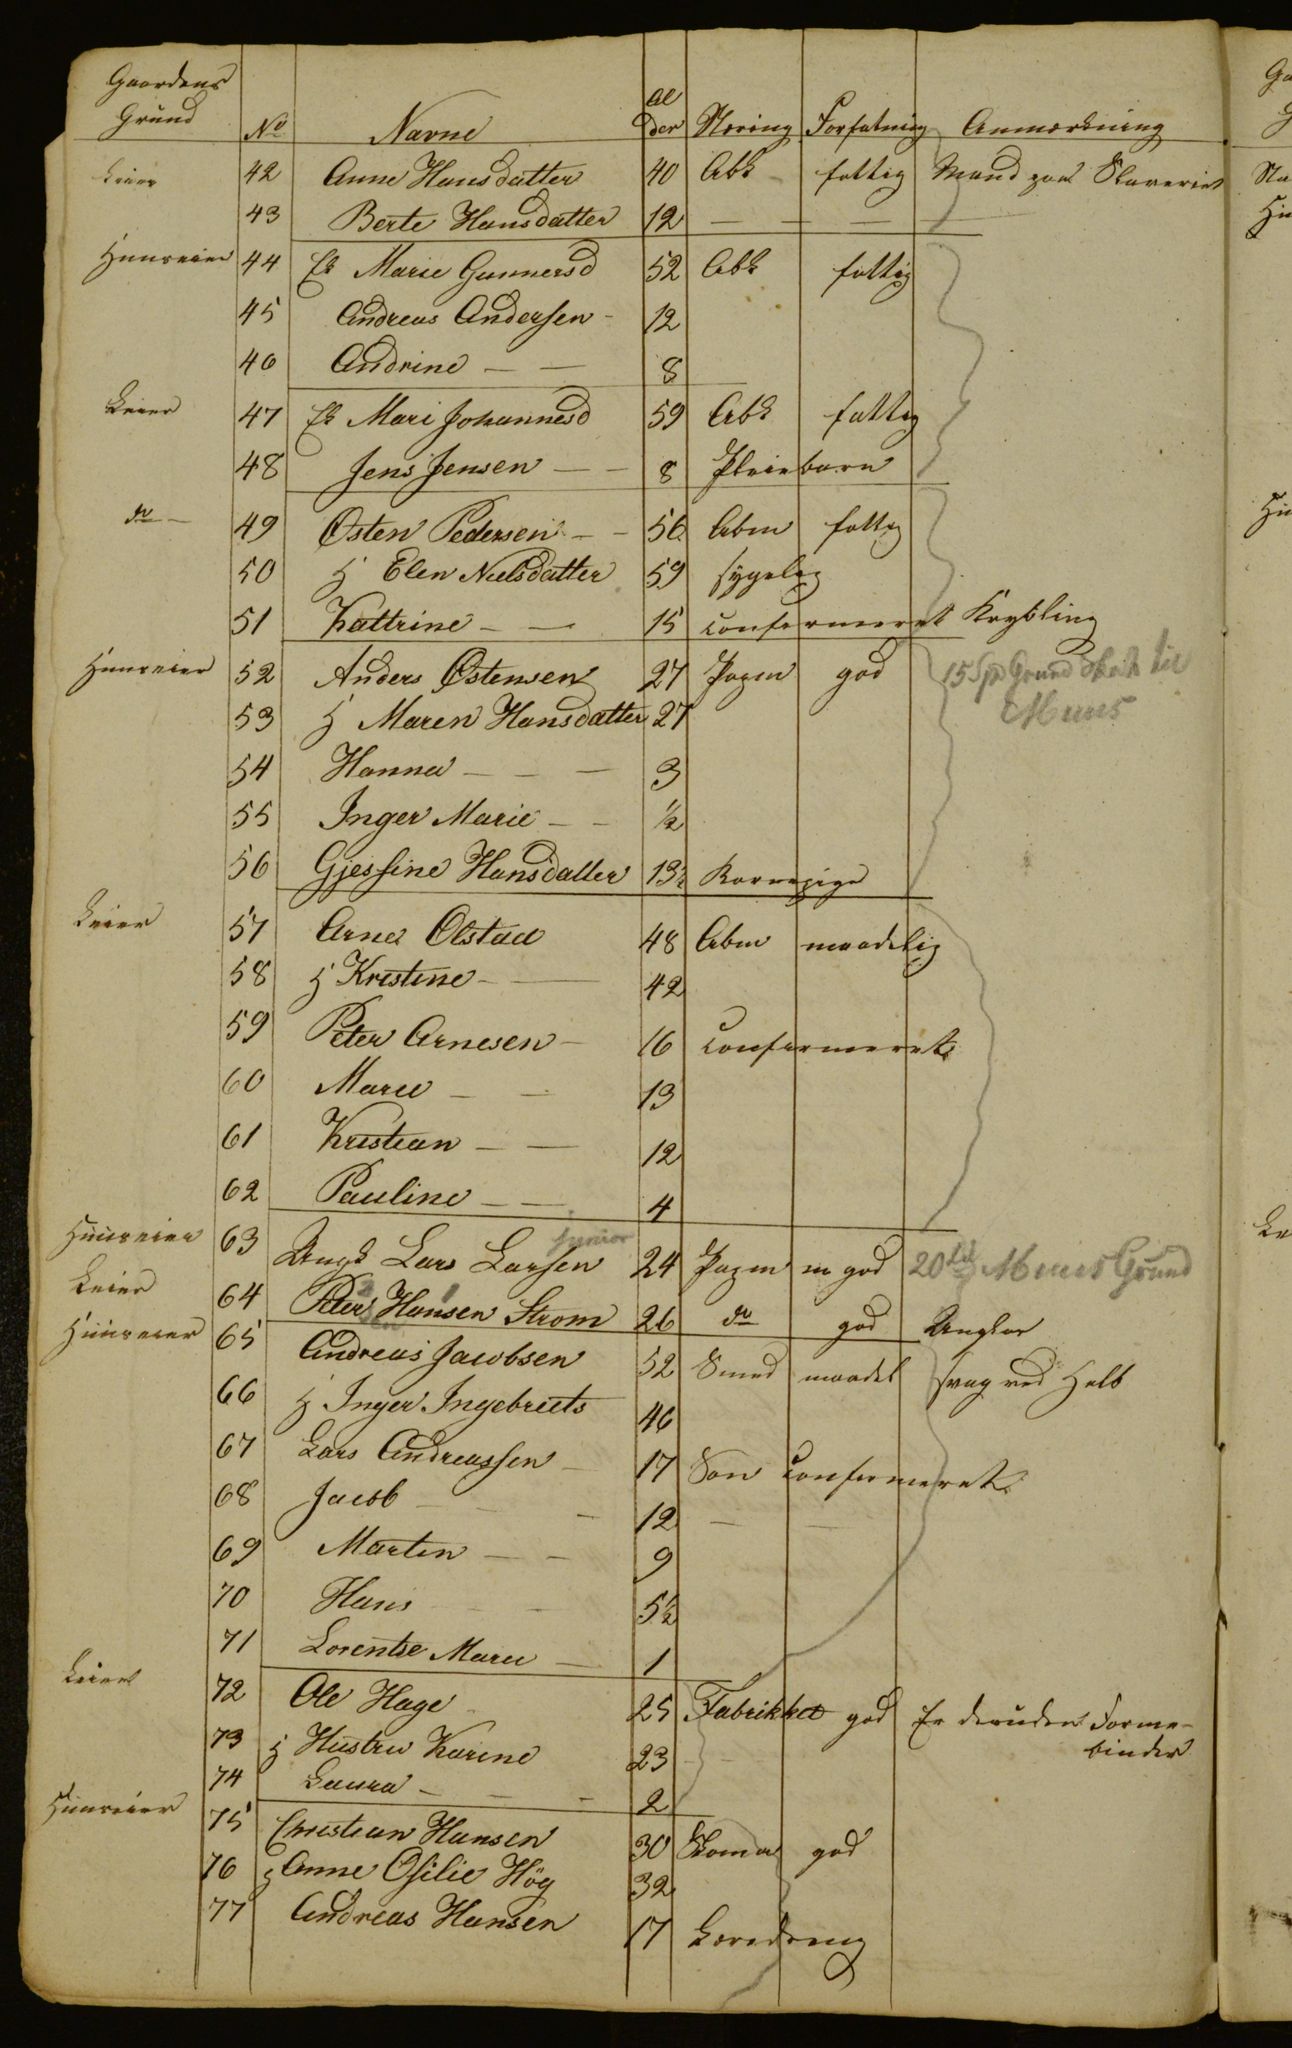 Gaardens
Grund No Navne Al
der Næring Forfatning Anmærkning
Leier 42 Anne Hansdatter 40 Abk fattig Mand paa Slaveriet
43 Berte Hansdatter 12 — — — —
Huuseier 44 Ek Marie Gunnersd 52 Abk fattig
45 Andreas Andersen - 12
46 Andrine — — 8
Leier 47 Ek Mari Johannesd 59 Abk fattig
48 Jens Jensen — — 8 Pleiebarn
do — 49 Østen Pedersen — — 56 Abm fattig
50 H Elen Nielsdatter 59 sygelig
51 Kattrine — — 15 confirmeret Krybling
Huuseier 52 Anders Østensen 27 Pagm god 15 Sp Grundskat til
Muus
53 H Maren Hansdatter 27
54 Hanna — — — 3
55 Inger Marie — — ½
56 Gjessine Hansdatter 13½ Barnepige
Leier 57 Arne Olstad 48 Abm maadelig
58 H Kristine — — 42
59 Peter Arnesen — 16 confirmeret
60 Marie — — 13
61 Kristian — — 12
62 Pauline — — 4
Huuseier 63 Ungk Lars Larsen junior 24 Pagm m god 20 til Muus Grund
Leier 64 Peter Hansen Strøm 26 do god Ungkar
Huuseier 65 Andreas Jacobsen 52 Smed maadel svag ved Helb
66 H Inger Ingebrets 46
67 Lars Andreassen — 17 Søn confirmeret
68 Jacob — — — 12 — —
69 Martin — — 9
70 Hans — — 5½
71 Lorentse Marie — 1
Leier 72 Ole Hage 25 Fabrikket god Er desuden Forme-
binder
73 H Hustru Karine 23 — —
74 Laura — — — 2
Huuseier 75 Christian Hansen 30 Skoma god
76 H Anne Osilie Høg 32
77 Andreas Hansen 17 Læredreng